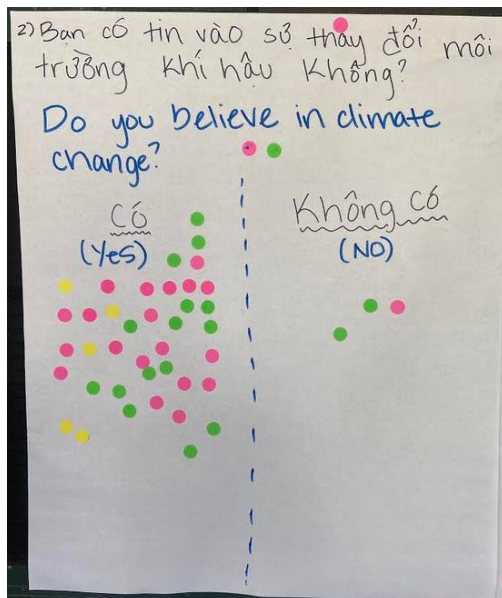 2) Bạn có tin vào sử thay đổi môi
trường khí hậu không?
Do you believe in climate
change?
Có
(Yes)
Không có
(NO)